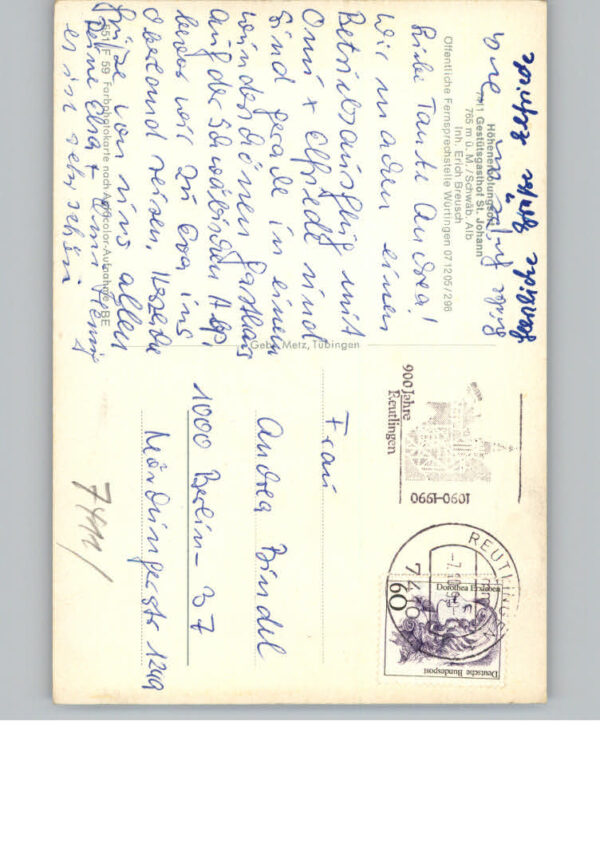 Höhenerholungsort
7411 Gestütsgasthof St. Johann
765 m ü. M. / Schwäb. Alb
Inh. Erich Breusch
Öffentliche Fernsprechstelle Würtingen 071205/296
Liebe Tante Andrea!
Wir machen einen
Betriebsausflug mit
Omi + Elfriede sind
sind gerade in einem
wunderschönen Gasthaus
auf der Schwäbischen Alb,
bevor wir zu Eva ins
Oberland reisen. Herzliche
Grüße von uns allen
Deine Elsa +
es ist sehr schön
herzliche Grüße Elfriede
651 F 59 Farbphotokarte nach Agfacolor-Aufnahme BE
Gebr. Metz, Tübingen
900 Jahre
Reutlingen
1090-1990
REUTLINGEN
Dorothea Erxleben
60
Deutsche Bundespost
Frau
Andrea Bindel
1000 Berlin - 37
Mörchingerstr 124a
7411/